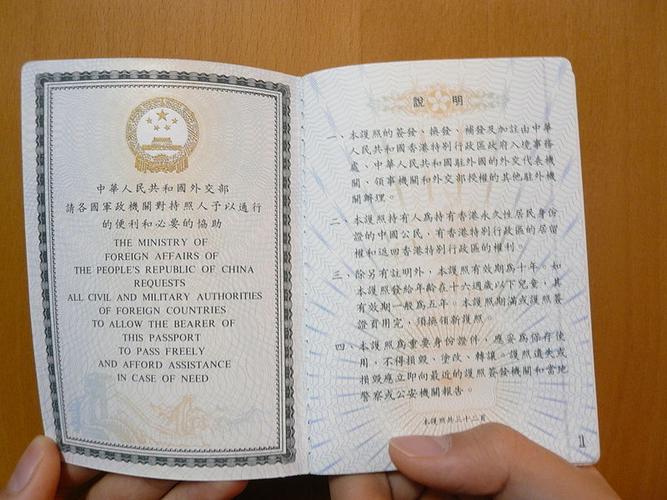 中華人民共和國外交部
請各國軍政機關對持照人予以通行
的便利和必要的協助
THE MINISTRY OF
FOREIGN AFFAIRS OF
THE PEOPLE'S REPUBLIC OF CHINA
REQUESTS
ALL CIVIL AND MILITARY AUTHORITIES
OF FOREIGN COUNTRIES
TO ALLOW THE BEARER OF
THIS PASSPORT
TO PASS FREELY
AND AFFORD ASSISTANCE
IN CASE OF NEED
說 明
一、本護照的簽發、換發、補發及加註由中華
人民共和國香港特別行政區政府入境事務
處、中華人民共和國駐外國的外交代表機
關、領事機關和外交部授權的其他駐外機
關辦理.
二、本護照持有人爲持有香港永久性居民身份
證的中國公民，有香港特別行政區的居留
權和返回香港特別行政區的權利.
三、除另有註明外，本護照有效期爲十年。如
本護照發給年齡在十六週歲以下兒童，其
有效期一般爲五年。本護照期滿或護照簽
證頁用完，須換領新護照.
四、本護照爲重要身份證件，應妥爲保存使
用，不得損毀、塗改、轉讓。護照遺失或
損毀應立即向最近的護照簽發機關和當地
警察或公安機關報告.
本護照共三十二頁
1